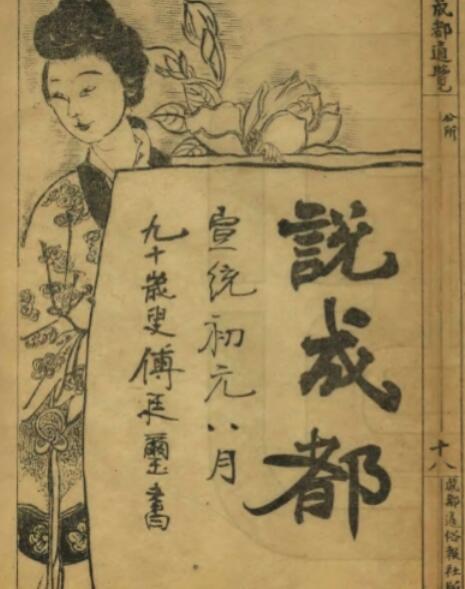 說成都
宣統初元八月
九十歲叟傅廷璽書
成都通覽
公所
十八
成都通俗報社印